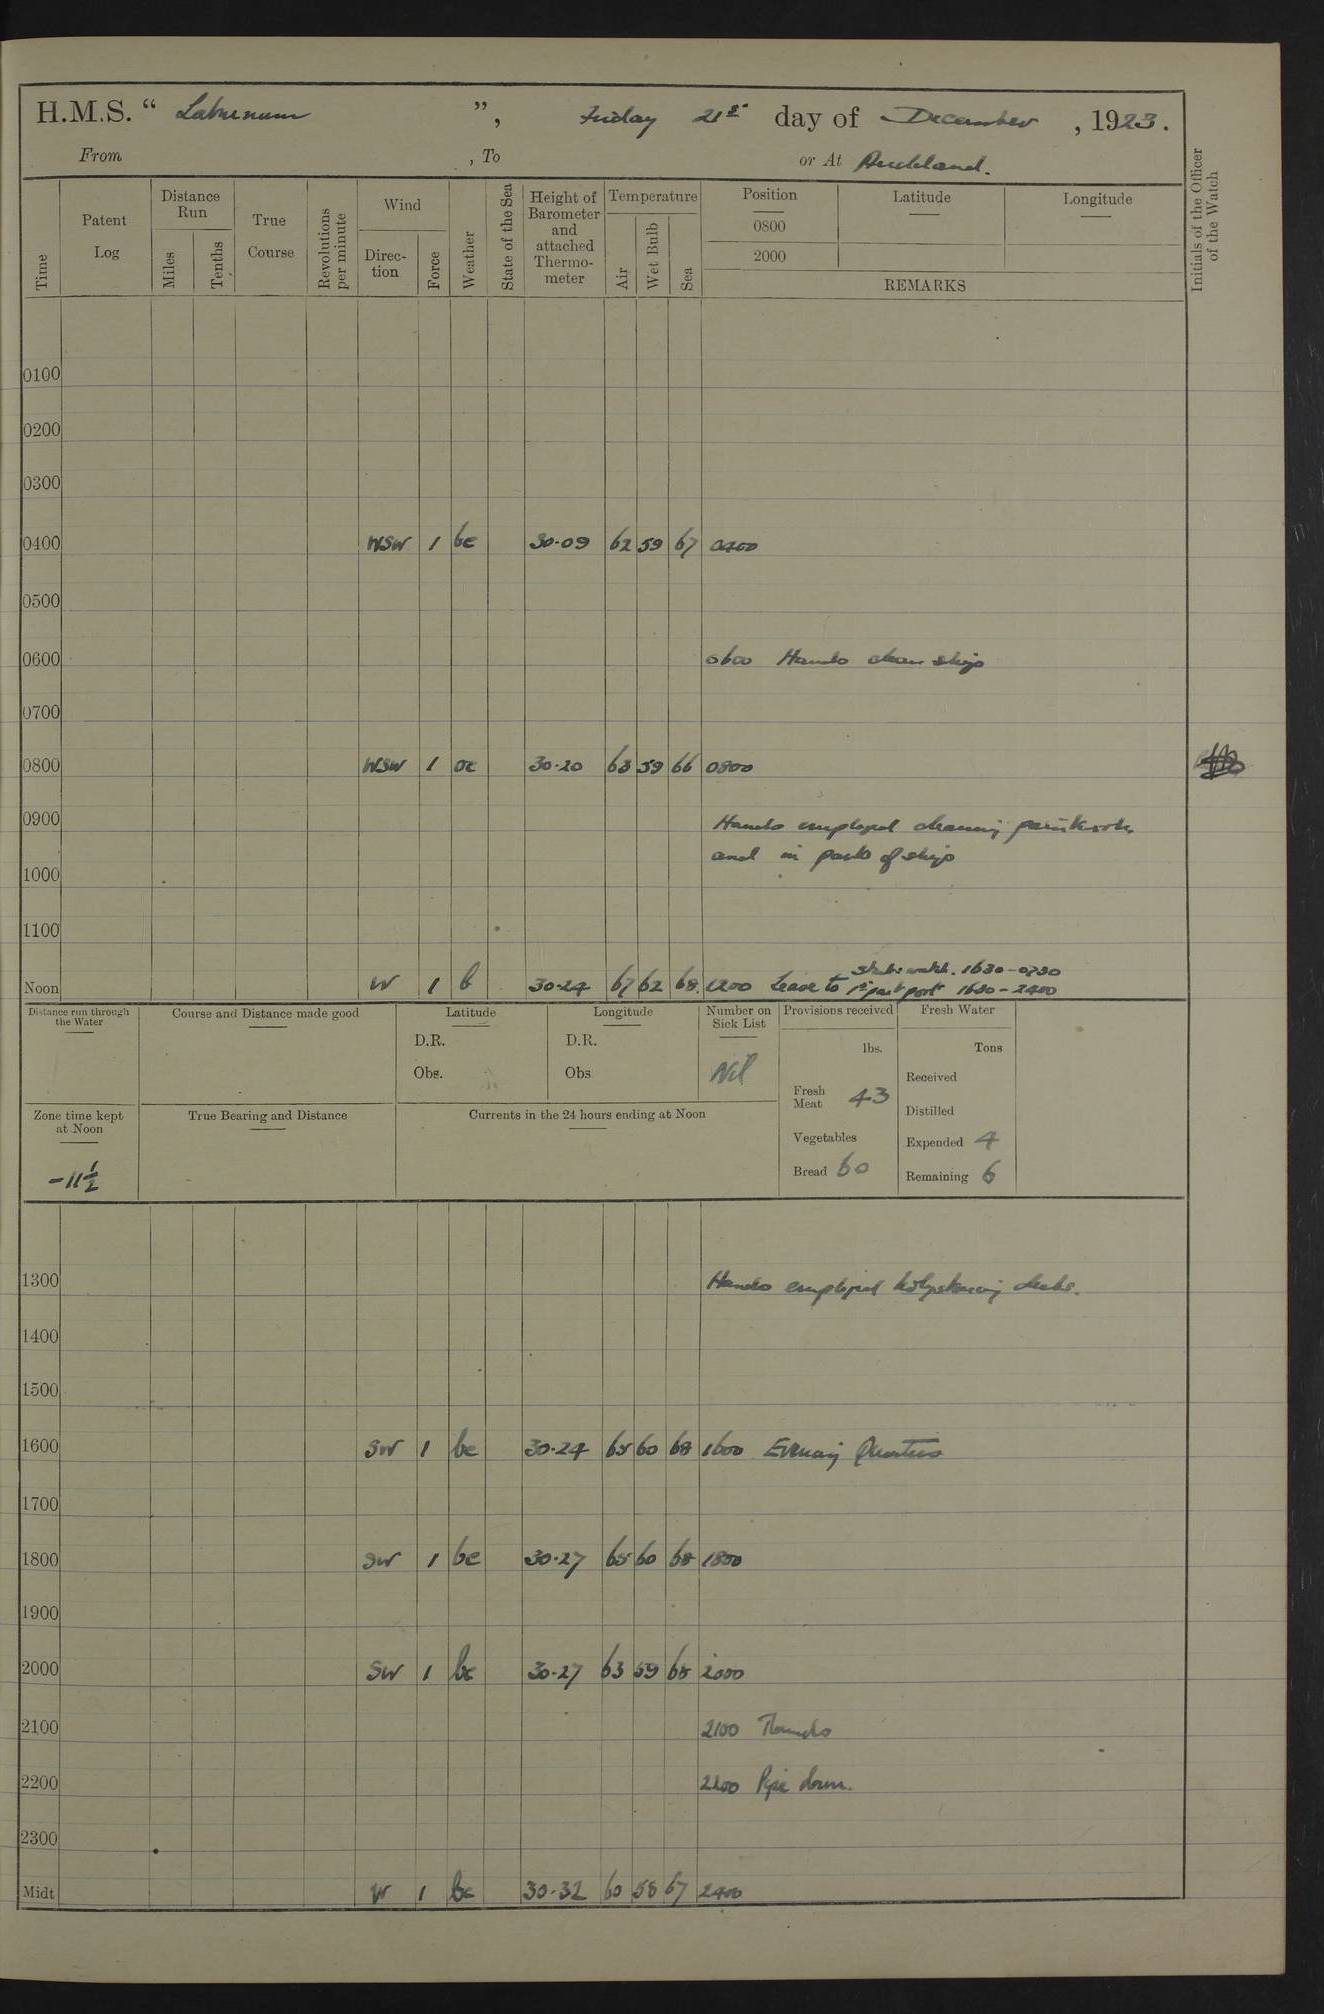 H.M.S. “ Laburnum ”, Friday 21st day of December, 1923.
From , To or At Auckland.
Time Patent Log Distance Run Miles Tenths True Course Revolutions per minute Wind Direc-tion Force Weather State of the Sea Height of Barometer and attached Thermo-meter Temperature Air Wet Bulb Sea Position 0800 2000 Latitude Longitude REMARKS Initials of the Officer of the Watch
0100
0200
0300
0400 WSW 1 bc 30·09 62 59 67 0400
0500
0600 0600 Hands clean ship
0700
0800 WSW 1 oc 30·20 63 59 66 0800
0900 Hands employed cleaning paintwork
and in parts of ship
1000
1100
Noon W 1 b 30·24 67 62 68 1200 Leave to Starbd watch. 1630-0730
1st part port 1630-2400
Distance run through the Water Course and Distance made good Latitude Longitude Number on Sick List Provisions received Fresh Water
D.R. D.R. lbs. Tons
Obs. Obs Nil Received
Fresh Meat 43 Distilled
Zone time kept at Noon True Bearing and Distance Currents in the 24 hours ending at Noon
Vegetables Expended 4
-11½ Bread 60 Remaining 6
1300 Hands employed holystoning decks.
1400
1500
1600 SW 1 bc 30·24 65 60 68 1600 Evening Quarters
1700
1800 SW 1 bc 30·27 65 60 68 1800
1900
2000 SW 1 bc 30·27 63 59 68 2000
2100 2100 Rounds
2200 2200 Pipe down.
2300
Midt W 1 bc 30·32 60 58 67 2400